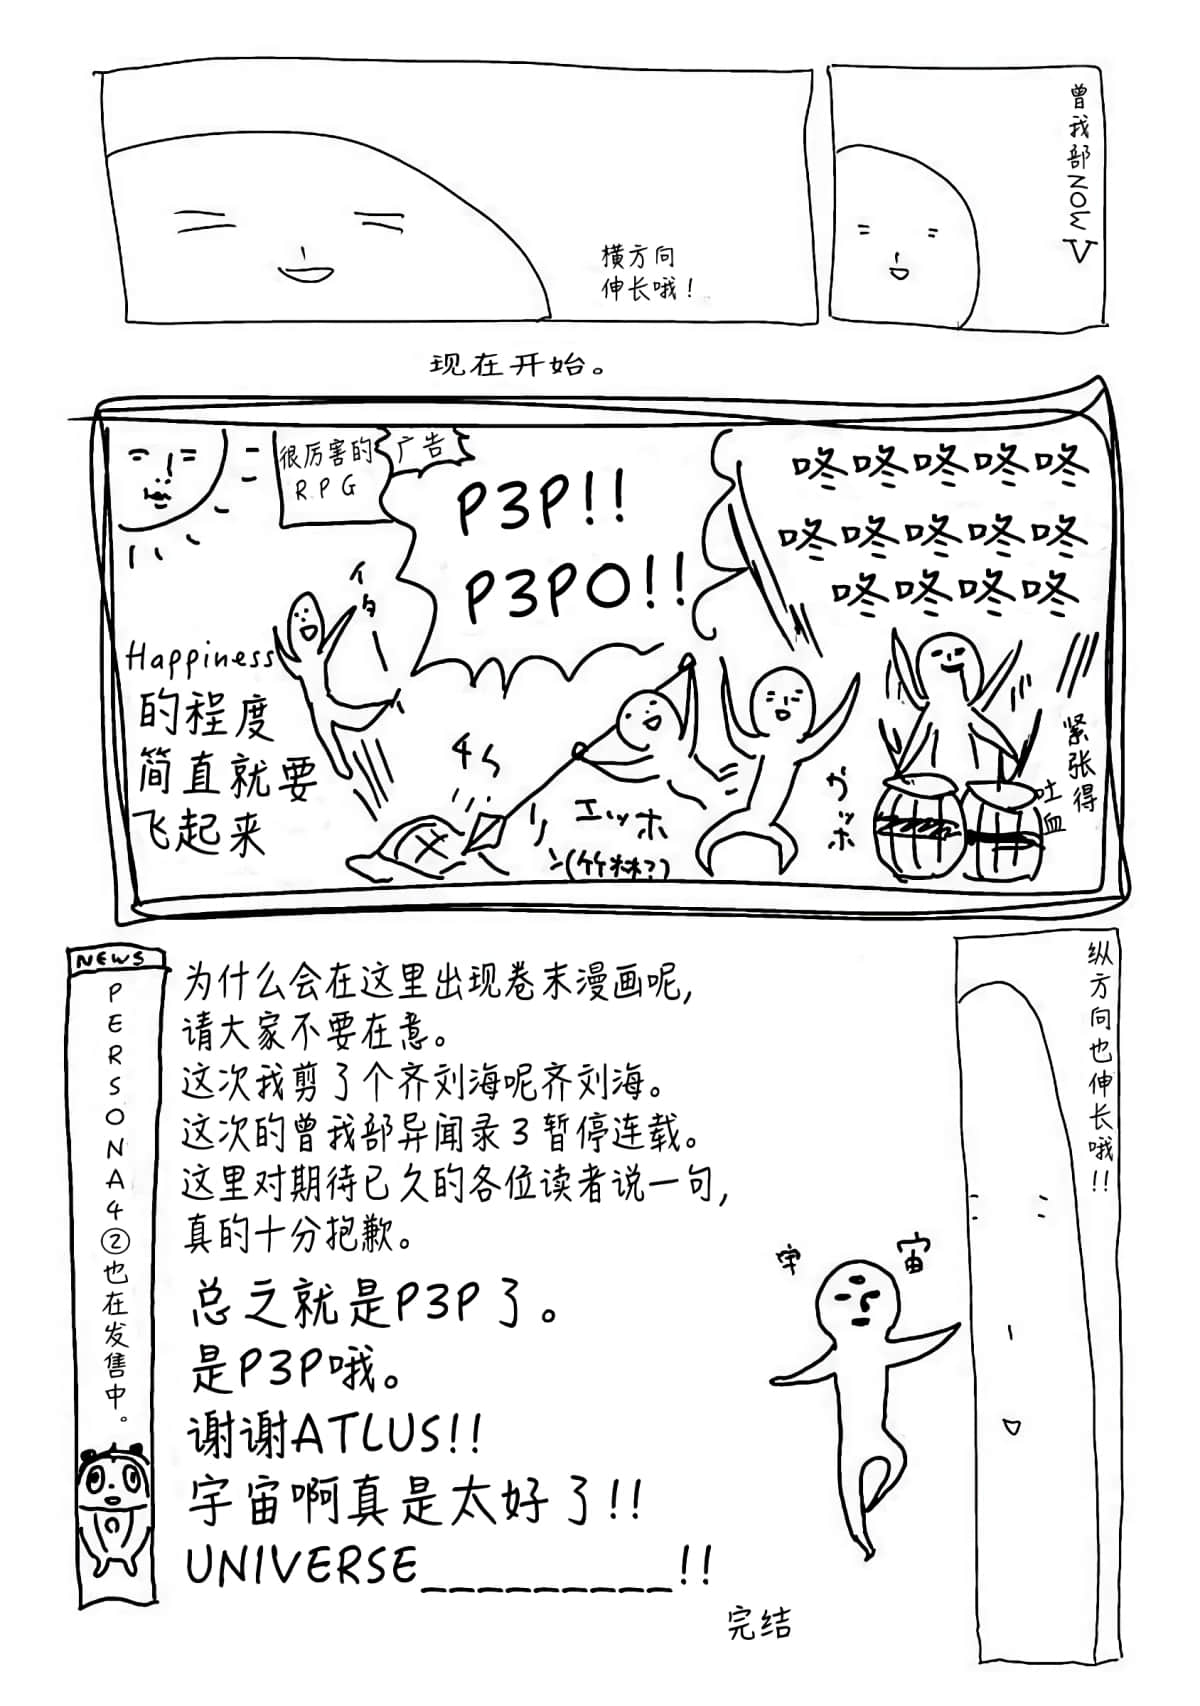 曾我部NOW
横方向
伸长哦！
现在开始。
咚咚咚咚咚
咚咚咚咚咚
咚咚咚咚
P3P!!
P3PO!!
广告
很厉害的
RPG
イタ
Happiness
的程度
简直就要
飞起来
紧张得
吐血
カッポ
エッホ
(竹林?)
NEWS
PERSONA4②也在发售中。
为什么会在这里出现卷末漫画呢,
请大家不要在意。
这次我剪了个齐刘海呢齐刘海。
这次的曾我部异闻录3暂停连载。
这里对期待已久的各位读者说一句,
真的十分抱歉。
总之就是P3P了。
是P3P哦。
谢谢ATLUS!!
宇宙啊真是太好了!!
UNIVERSE_________!!
完结
宇宙
纵方向也伸长哦!!